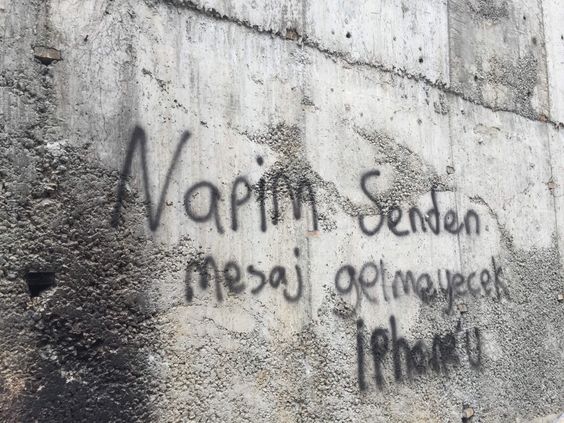 Napim Senden
mesaj gelmeyecek
iphone'u